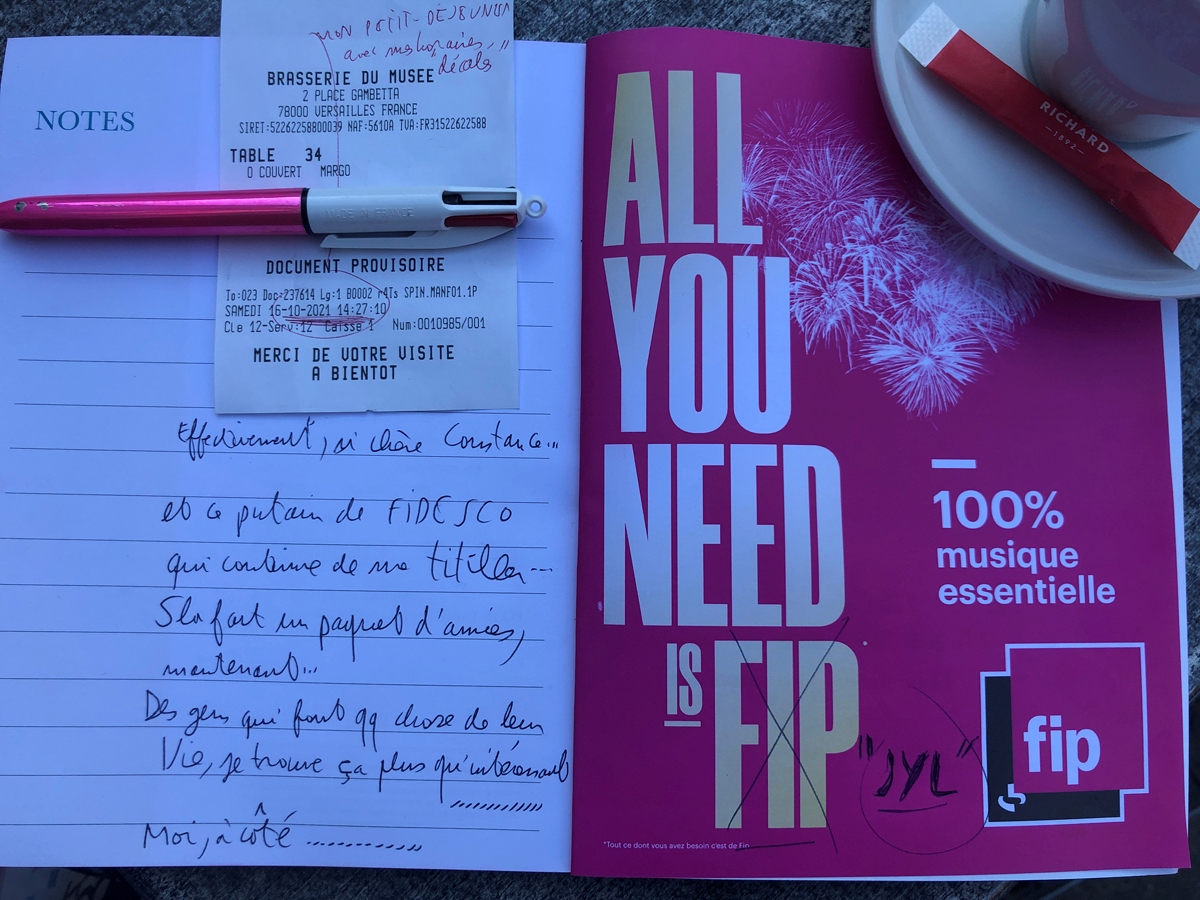 MON PETIT-DEJEUNER
avec mes horaires,
décalés
BRASSERIE DU MUSEE
2 PLACE GAMBETTA
78000 VERSAILLES FRANCE
SIRET:52262258800039 NAF:5610A TVA:FR31522622588
TABLE 34
0 COUVERT MARGO
MADE IN FRANCE
DOCUMENT PROVISOIRE
To:023 Doc:237614 Lg:1 B0002 r4Ts SPIN.MANF01.1P
SAMEDI 16-10-2021 14:27:10
Cle 12-Serv:12 Caisse 1 Num:0010985/001
MERCI DE VOTRE VISITE
A BIENTOT
NOTES
Effectivement, si chère Constance...
et ce putain de FIDESCO
qui continue de me titiller...
Sla fait un paquet d'années,
maintenant...
Des gens qui font qq chose de leur
Vie, je trouve ça plus qu'intéressant
Moi, à côté ............
ALL
YOU
NEED
IS FIP
"JYL"
100%
musique
essentielle
fip
*Tout ce dont vous avez besoin c'est de Fip
RICHARD
—1892—
RICHARD